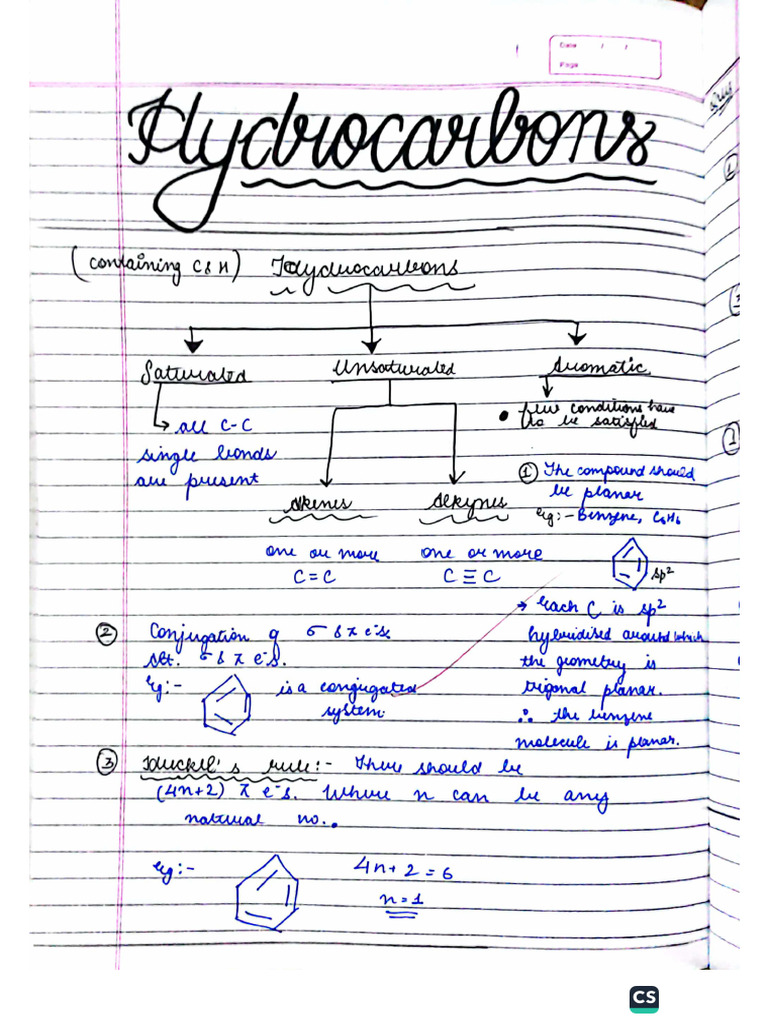 Date / /
Page
Hydrocarbons
(containing C & H) Hydrocarbons
Saturated Unsaturated Aromatic
→ all C-C
single bonds
are present
• few conditions have
to be satisfied
① The compound should
be planar
eg:- Benzene, C6H6
Alkenes Alkynes
one or more one or more
C=C C≡C
sp²
→ Each C is sp²
hybridised around which
the geometry is
trigonal planar.
∴ the benzene
molecule is planar.
② Conjugation of σ & π e⁻s
alt. σ & π e⁻s.
Eg:- is a conjugated
system.
③ Huckel's rule:- There should be
(4n+2) π e⁻s. Where n can be any
natural no..
eg:- 4n+2=6
n=1
CS